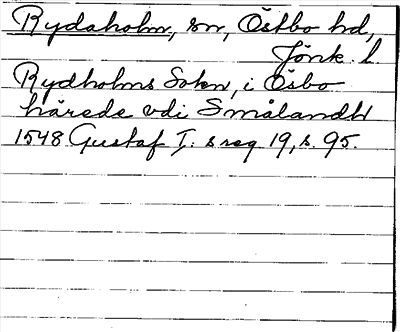 Rydaholm, sn, Östbo hd,
Jönk. l.
Rydholms Soken, i Osbo
härede vdi Smålandh
1548. Gustaf I:s reg 19, s. 95.